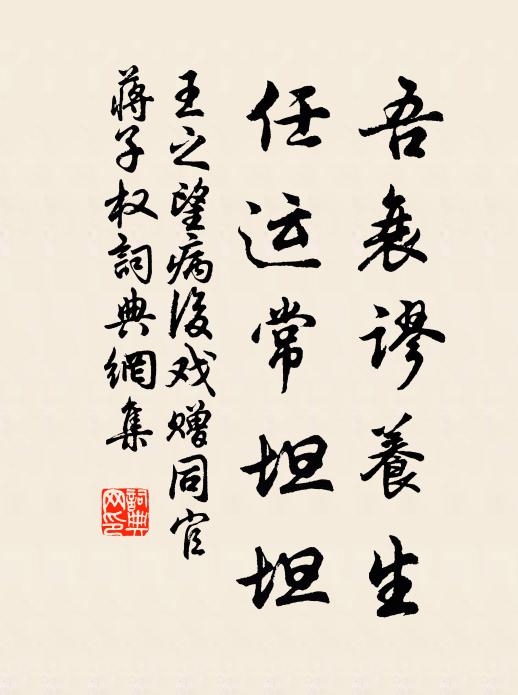 吾衰谬養生
任运常坦坦
王之望病後戏赠同官
蒋子权詞典網集
詞典网印